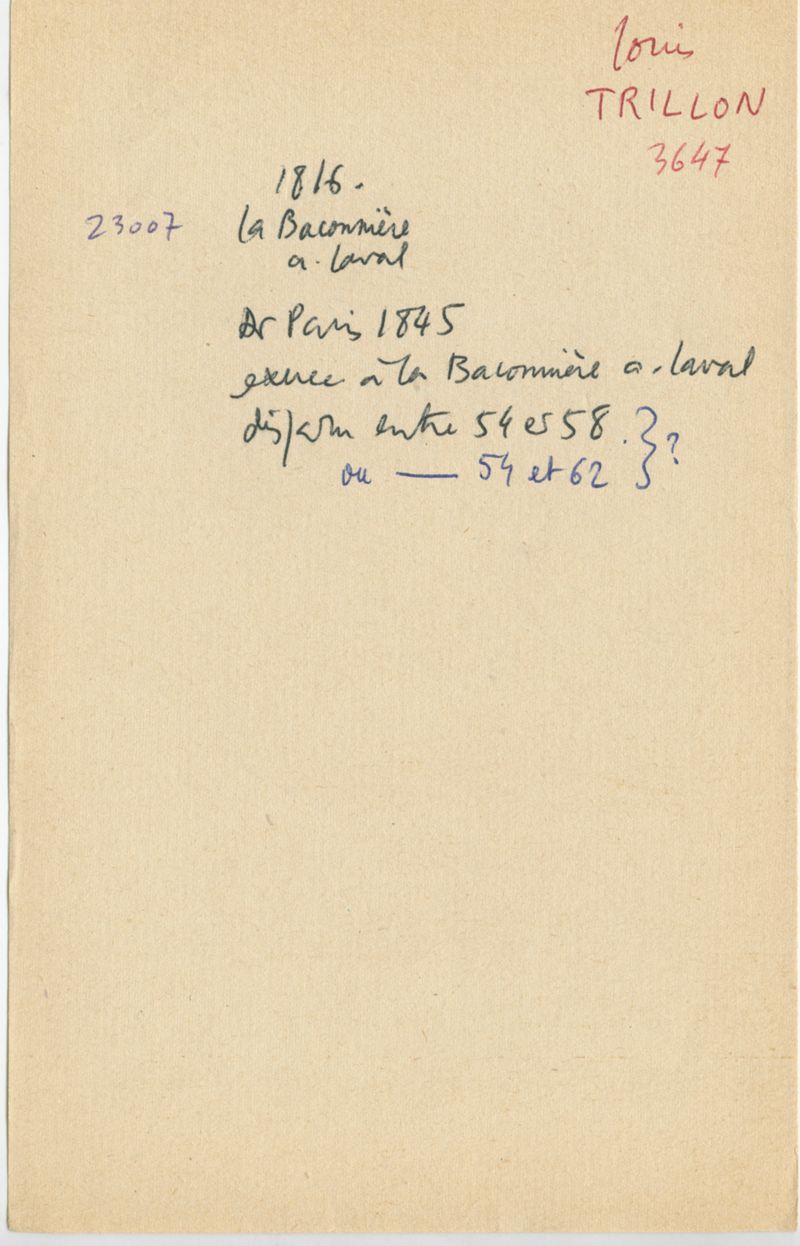 Louis
TRILLON
3647
1816.
23007 la Baconnière
a. laval
Dr Paris 1845
exerce à la Baconnière a. laval
entre 54 et 58. } ?
ou — 54 et 62